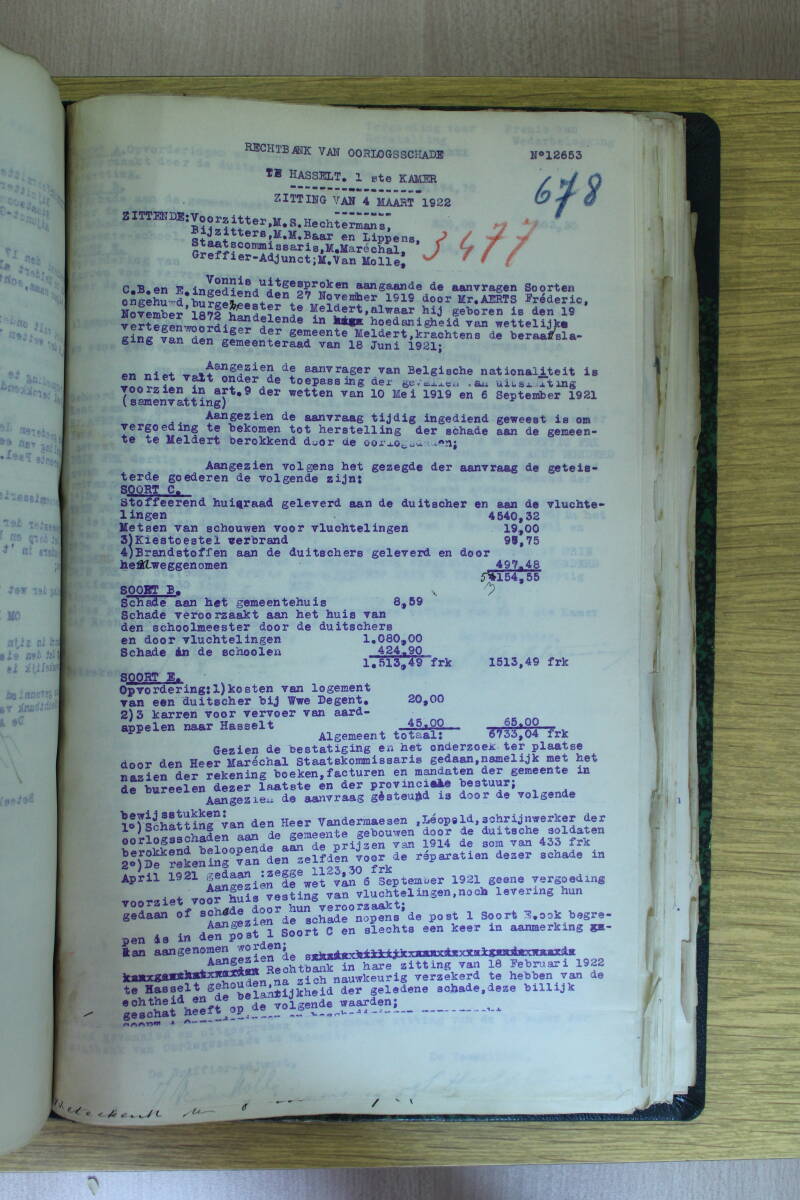 RECHTBANK VAN OORLOGSSCHADE
N°12653
TE HASSELT. 1 ste KAMER
678
ZITTING VAN 4 MAART 1922
3477
ZITTENDE:Voorzitter,M.S.Hechtermans,
Bijzitters,M.M.Baar en Lippens,
Staatscommissaris,M.Maréchal,
Greffier-Adjunct;M.Van Molle,
Vonnis uitgesproken aangaande de aanvragen Soorten
C.B.en E.ingediend den 27 November 1919 door Mr.AERTS Fréderic,
ongehuwd,burgemeester te Meldert,alwaar hij geboren is den 19
November 1872 handelende in hoedanigheid van wettelijke
vertegenwoordiger der gemeente Meldert,krachtens de beraadsla-
ging van den gemeenteraad van 18 Juni 1921;
Aangezien de aanvrager van Belgische nationaliteit is
en niet valt onder de toepassing der gevallen van uitsluiting
voorzien in art.9 der wetten van 10 Mei 1919 en 6 September 1921
(samenvatting)
Aangezien de aanvraag tijdig ingediend geweest is om
vergoeding te bekomen tot herstelling der schade aan de gemeen-
te te Meldert berokkend door de
Aangezien volgens het gezegde der aanvraag de geteis-
terde goederen de volgende zijn:
SOORT C.
Stoffeerend huisraad geleverd aan de duitscher en aan de vluchte-
lingen 4540,32
Metsen van schouwen voor vluchtelingen 19,00
3)Kiestoestel verbrand 98,75
4)Brandstoffen aan de duitschers geleverd en door
hen weggenomen 497.48
154,55
SOORT B.
Schade aan het gemeentehuis 8,59
Schade veroorzaakt aan het huis van
den schoolmeester door de duitschers
en door vluchtelingen 1.080,00
Schade an de schoolen 424.90
1.513,49 frk 1513,49 frk
SOORT E.
Opvordering:1)kosten van logement
van een duitscher bij Wwe Degent. 20,00
2)3 karren voor vervoer van aard-
appelen naar Hasselt 45.00 65.00
Algemeent totaal: 6733,04 frk
Gezien de bestatiging en het onderzoek ter plaatse
door den Heer Maréchal Staatskommissaris gedaan,namelijk met het
nazien der rekening boeken,facturen en mandaten der gemeente in
de bureelen dezer laatste en der provinciale bestuur;
Aangezien de aanvraag gesteund is door de volgende
bewijsstukken:
1°)Schatting van den Heer Vandermaesen ,Léopold,schrijnwerker der
oorlogsschaden aan de gemeente gebouwen door de duitsche soldaten
berokkend beloopende aan de prijzen van 1914 de som van 433 frk
2°)De rekening van den zelfden voor de réparatien dezer schade in
April 1921 gedaan :zegge 1123,30 frk
Aangezien de wet van 6 September 1921 geene vergoeding
voorziet voor huis vesting van vluchtelingen,noch levering hun
gedaan of schade door hun veroorzaakt;
Aangezien de schade nopens de post 1 Soort E.ook begre-
pen is in den post 1 Soort C en slechts een keer in aanmerking
kan aangenomen worden;
Aangezien de
Rechtbank in hare zitting van 18 Februari 1922
te Hasselt gehouden,na zich nauwkeurig verzekerd te hebben van de
echtheid en de belantijkheid der geledene schade,deze billijk
geschat heeft op de volgende waarden;